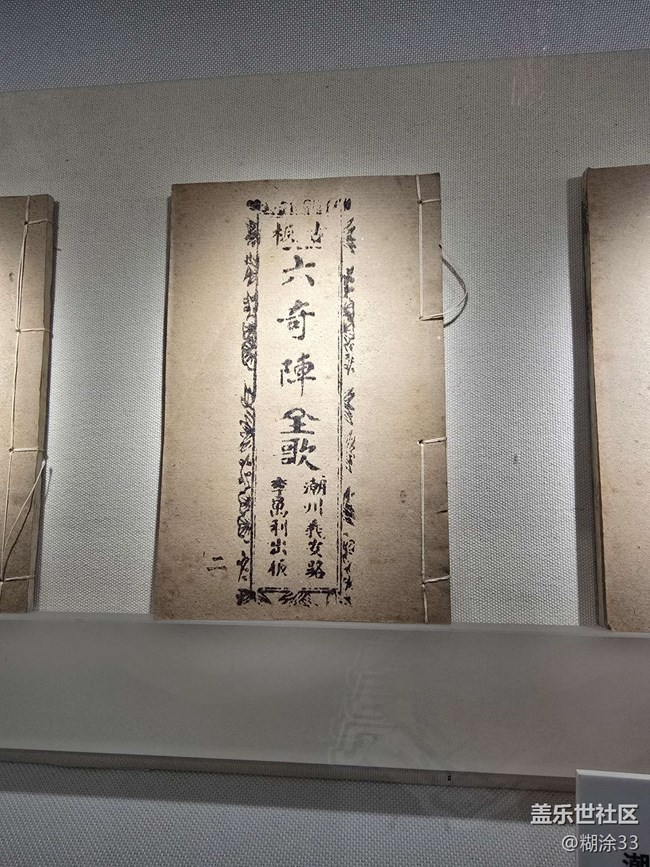 古板
六奇陣全歌
潮州義安路
李萬利出板
二
盖乐世社区
@糊涂33